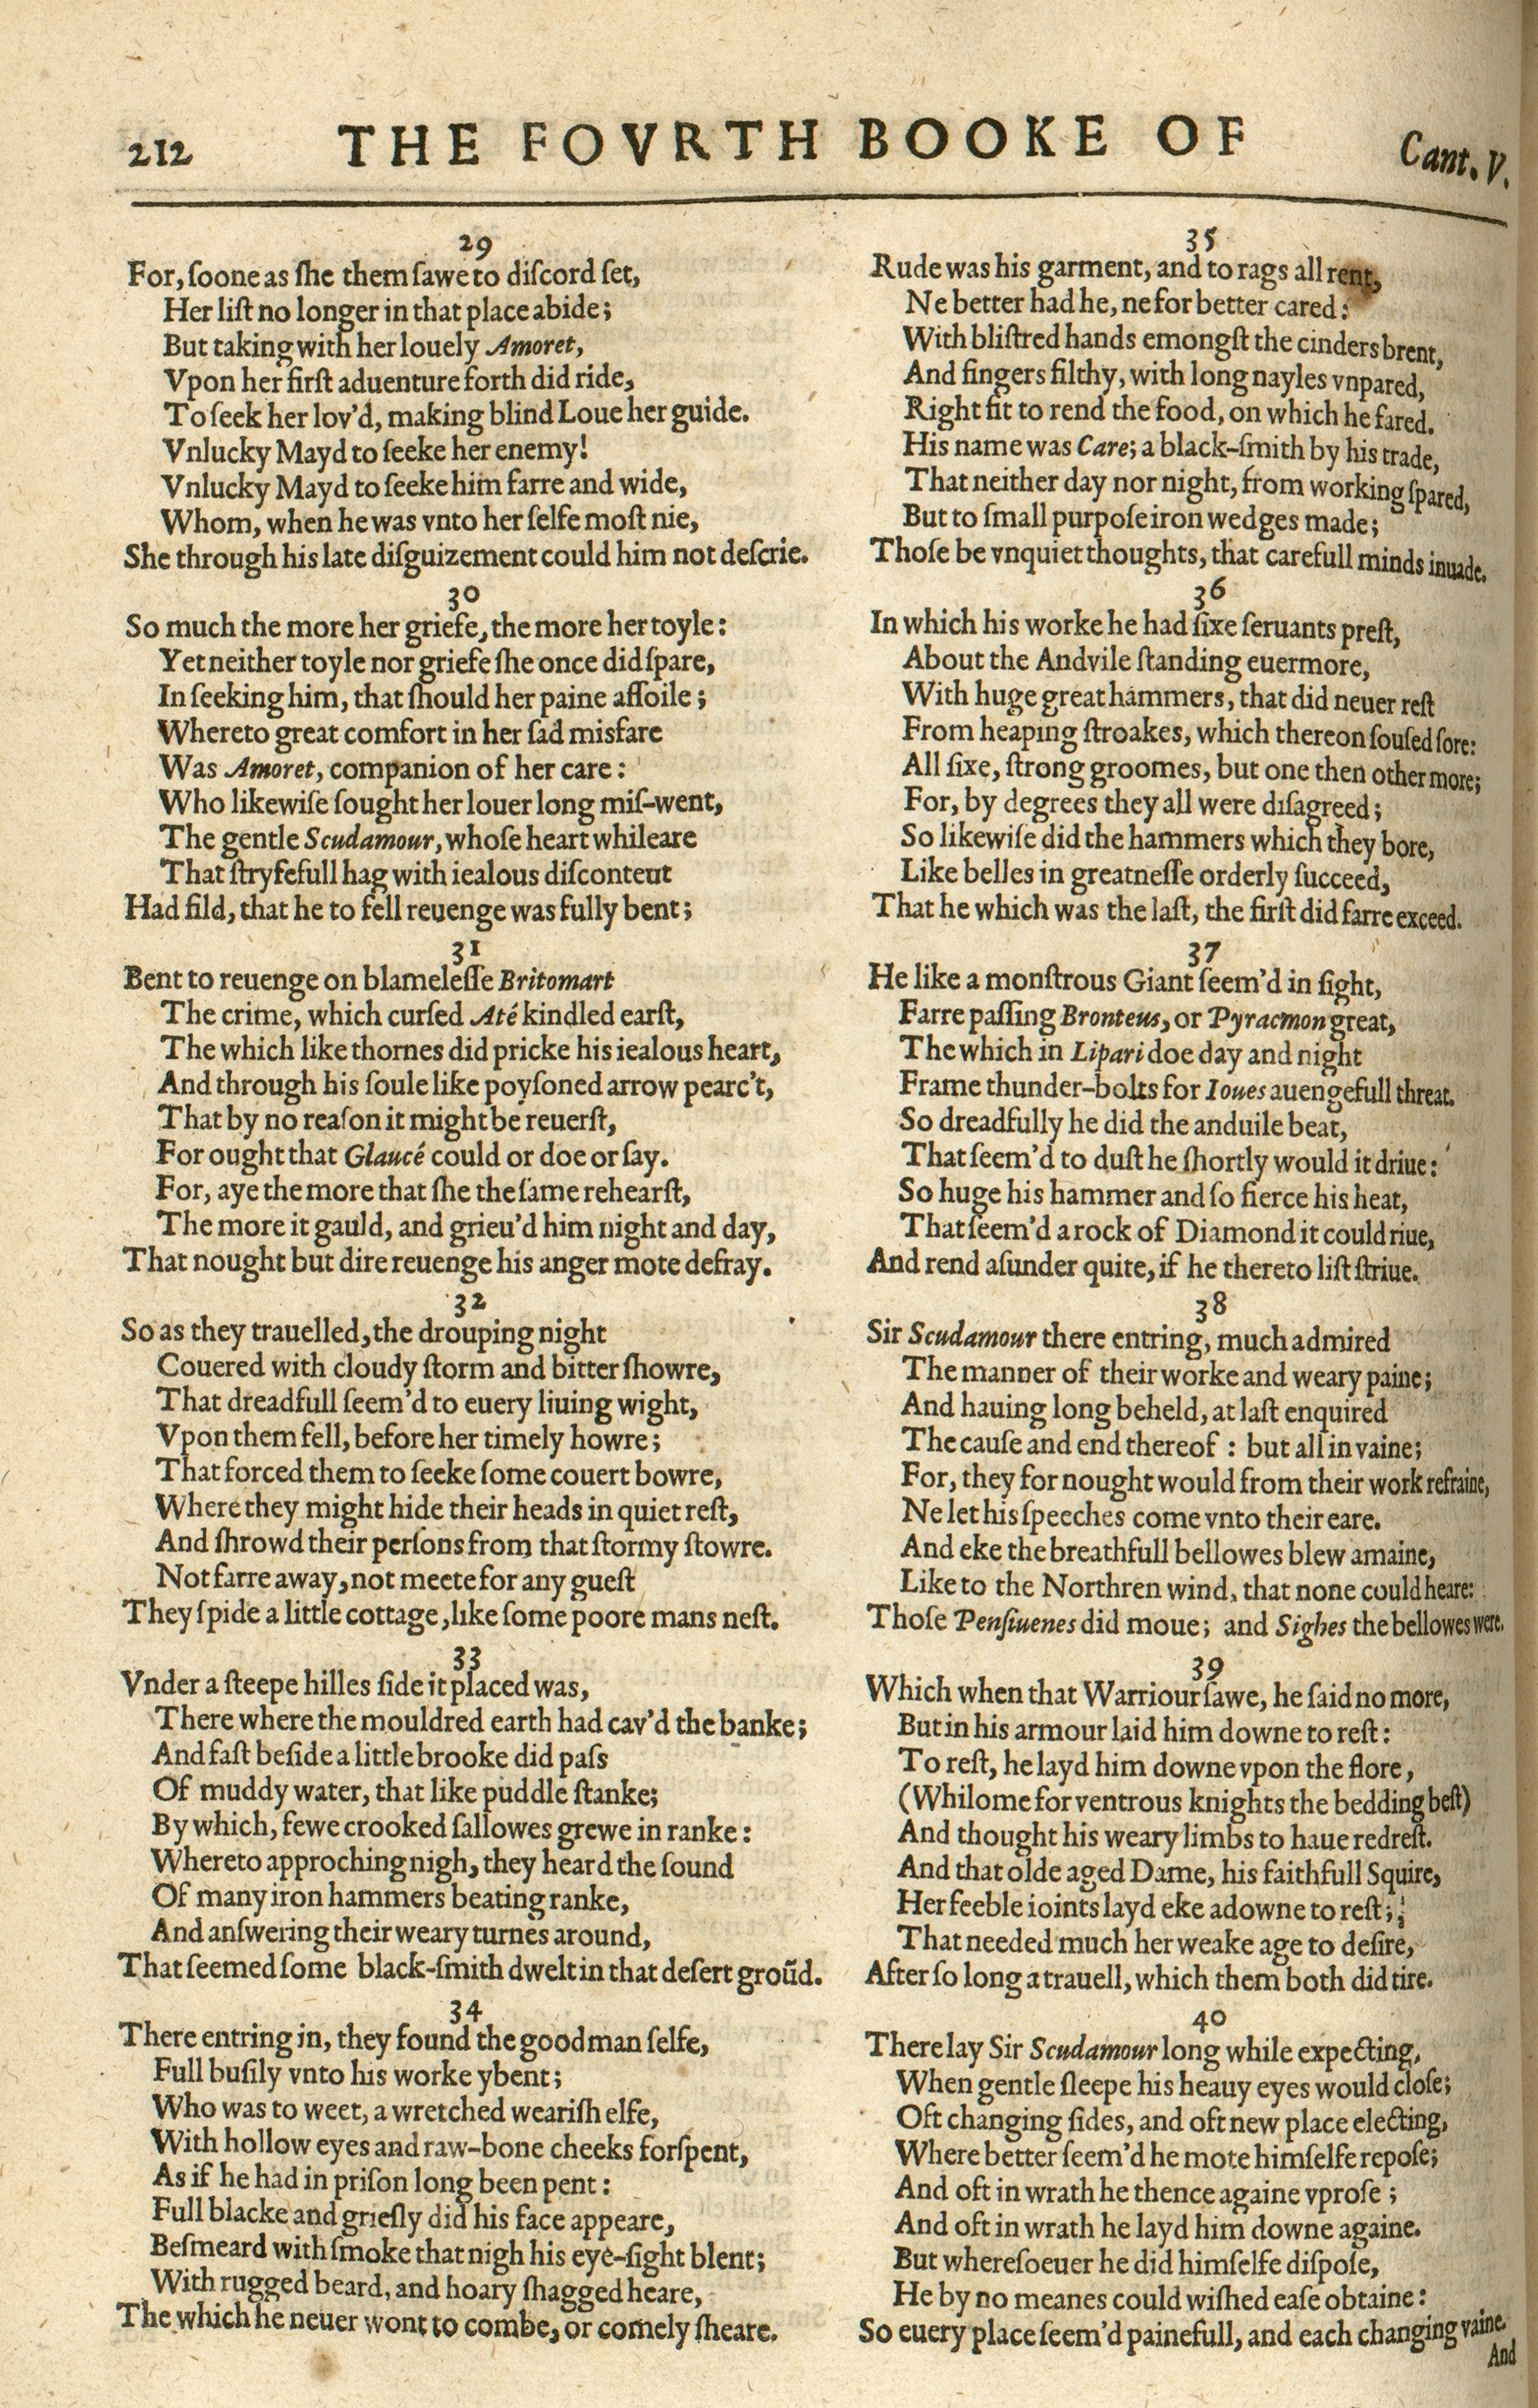 212 THE FOVRTH BOOKE OF Cant. V.
29
For, ſoone as ſhe them ſawe to diſcord ſet,
Her liſt no longer in that place abide;
But taking with her louely Amoret,
Vpon her firſt aduenture forth did ride,
To ſeek her lov'd, making blind Loue her guide.
Vnlucky Mayd to ſeeke her enemy!
Vnlucky Mayd to ſeeke him farre and wide,
Whom, when he was vnto her ſelfe moſt nie,
She through his late diſguizement could him not deſcrie.
30
So much the more her griefe, the more her toyle:
Yet neither toyle nor griefe ſhe once did ſpare,
In ſeeking him, that ſhould her paine aſſoile;
Whereto great comfort in her ſad misfare
Was Amoret, companion of her care:
Who likewiſe ſought her louer long miſ-went,
The gentle Scudamour, whoſe heart whileare
That ſtryfefull hag with iealous diſcontent
Had fild, that he to fell reuenge was fully bent;
31
Bent to reuenge on blameleſſe Britomart
The crime, which curſed Até kindled earſt,
The which like thornes did pricke his iealous heart,
And through his ſoule like poyſoned arrow pearc't,
That by no reaſon it might be reuerſt,
For ought that Glaucé could or doe or ſay.
For, aye the more that ſhe the ſame rehearſt,
The more it gauld, and grieu'd him night and day,
That nought but dire reuenge his anger mote defray.
32
So as they trauelled, the drouping night
Couered with cloudy ſtorm and bitter ſhowre,
That dreadfull ſeem'd to euery liuing wight,
Vpon them fell, before her timely howre;
That forced them to ſeeke ſome couert bowre,
Where they might hide their heads in quiet reſt,
And ſhrowd their perſons from that ſtormy ſtowre.
Not farre away, not meete for any gueſt
They ſpide a little cottage, like ſome poore mans neſt.
33
Vnder a ſteepe hilles ſide it placed was,
There where the mouldred earth had cav'd the banke;
And faſt beſide a little brooke did paſs
Of muddy water, that like puddle ſtanke;
By which, fewe crooked ſallowes grewe in ranke:
Whereto approching nigh, they heard the ſound
Of many iron hammers beating ranke,
And anſwering their weary turnes around,
That ſeemed ſome black-ſmith dwelt in that deſert groūd.
34
There entring in, they found the goodman ſelfe,
Full buſily vnto his worke ybent;
Who was to weet, a wretched weariſh elfe,
With hollow eyes and raw-bone cheeks forſpent,
As if he had in priſon long been pent:
Full blacke and grieſly did his face appeare,
Beſmeard with ſmoke that nigh his eye-ſight blent;
With rugged beard, and hoary ſhagged heare,
The which he neuer wont to combe, or comely ſheare.
35
Rude was his garment, and to rags all rent,
Ne better had he, ne for better cared:
With bliſtred hands emongſt the cinders brent,
And fingers filthy, with long nayles vnpared,
Right fit to rend the food, on which he fared.
His name was Care; a black-ſmith by his trade,
That neither day nor night, from working ſpared,
But to ſmall purpoſe iron wedges made;
Thoſe be vnquiet thoughts, that carefull minds inuade.
36
In which his worke he had ſixe ſeruants preſt,
About the Andvile ſtanding euermore,
With huge great hammers, that did neuer reſt
From heaping ſtroakes, which thereon ſouſed ſore:
All ſixe, ſtrong groomes, but one then other more;
For, by degrees they all were diſagreed;
So likewiſe did the hammers which they bore,
Like belles in greatneſſe orderly ſucceed,
That he which was the laſt, the firſt did farre exceed.
37
He like a monſtrous Giant ſeem'd in ſight,
Farre paſſing Bronteus, or Pyracmon great,
The which in Lipari doe day and night
Frame thunder-bolts for Ioues auengefull threat.
So dreadfully he did the anduile beat,
That ſeem'd to duſt he ſhortly would it driue:
So huge his hammer and ſo fierce his heat,
That ſeem'd a rock of Diamond it could riue,
And rend aſunder quite, if he thereto liſt ſtriue.
38
Sir Scudamour there entring, much admired
The manner of their worke and weary paine;
And hauing long beheld, at laſt enquired
The cauſe and end thereof : but all in vaine;
For, they for nought would from their work refraine,
Ne let his ſpeeches come vnto their eare.
And eke the breathfull bellowes blew amaine,
Like to the Northren wind, that none could heare:
Thoſe Penſiuenes did moue; and Sighes the bellowes were.
39
Which when that Warriour ſawe, he ſaid no more,
But in his armour laid him downe to reſt:
To reſt, he layd him downe vpon the flore,
(Whilome for ventrous knights the bedding beſt)
And thought his weary limbs to haue redreſt.
And that olde aged Dame, his faithfull Squire,
Her feeble ioints layd eke adowne to reſt;
That needed much her weake age to deſire,
After ſo long a trauell, which them both did tire.
40
There lay Sir Scudamour long while expecting,
When gentle ſleepe his heauy eyes would cloſe;
Oft changing ſides, and oft new place electing,
Where better ſeem'd he mote himſelfe repoſe;
And oft in wrath he thence againe vproſe;
And oft in wrath he layd him downe againe.
But whereſoeuer he did himſelfe diſpoſe,
He by no meanes could wiſhed eaſe obtaine:
So euery place ſeem'd painefull, and each changing vaine.
And